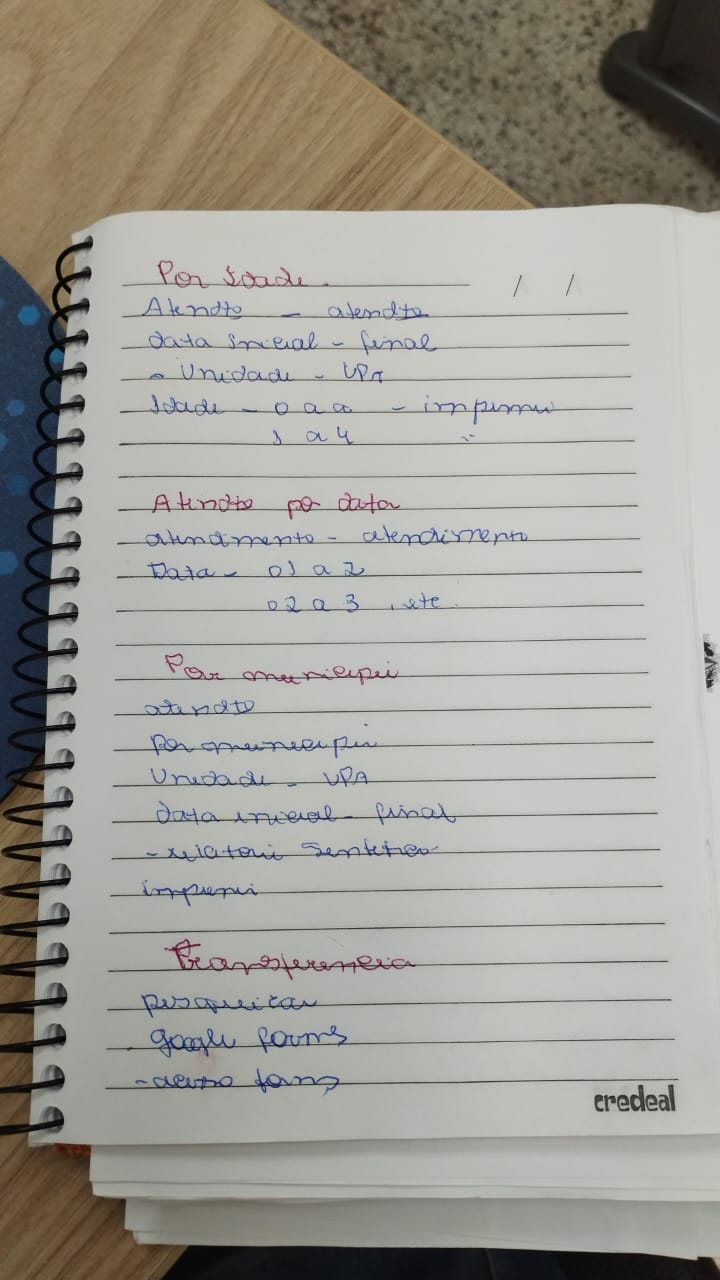 Por Idade. / /
Atendto - atendto
data inicial - final
- Unidade - UPA
Idade - 0 a a - imprimir
1 a 4 "
Atendto por data
atendimento - atendimento
Data - 01 a 2
02 a 3 , etc.
Por municipi
atendto
por municipi
Unidade - UPA
data inicial - final
- relatori Sentetico
imprimi
Transferencia
pesquisar
google forms
forms
credeal